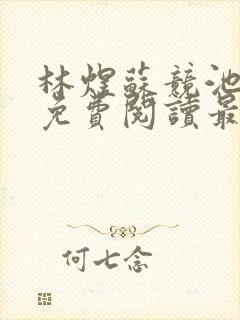 林煜蘇競池
免費閱讀最
何七念